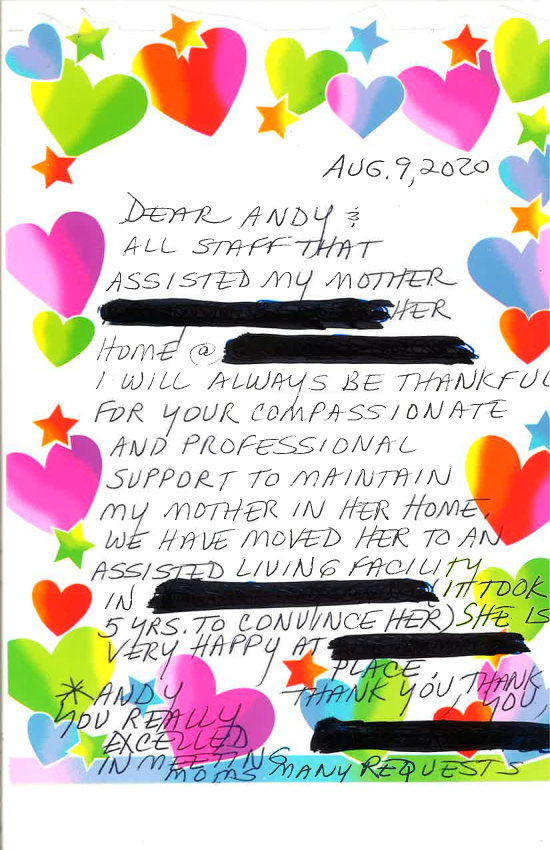 AUG. 9, 2020
DEAR ANDY &
ALL STAFF THAT
ASSISTED MY MOTHER
HER
HOME @
I WILL ALWAYS BE THANKFUL
FOR YOUR COMPASSIONATE
AND PROFESSIONAL
SUPPORT TO MAINTAIN
MY MOTHER IN HER HOME.
WE HAVE MOVED HER TO AN
ASSISTED LIVING FACILITY
IN (IT TOOK
5 YRS. TO CONVINCE HER) SHE IS
VERY HAPPY AT
PLACE.
THANK YOU, THANK
YOU,
* ANDY
YOU REALLY
EXCELLED
IN MEETING
MOMS MANY REQUESTS